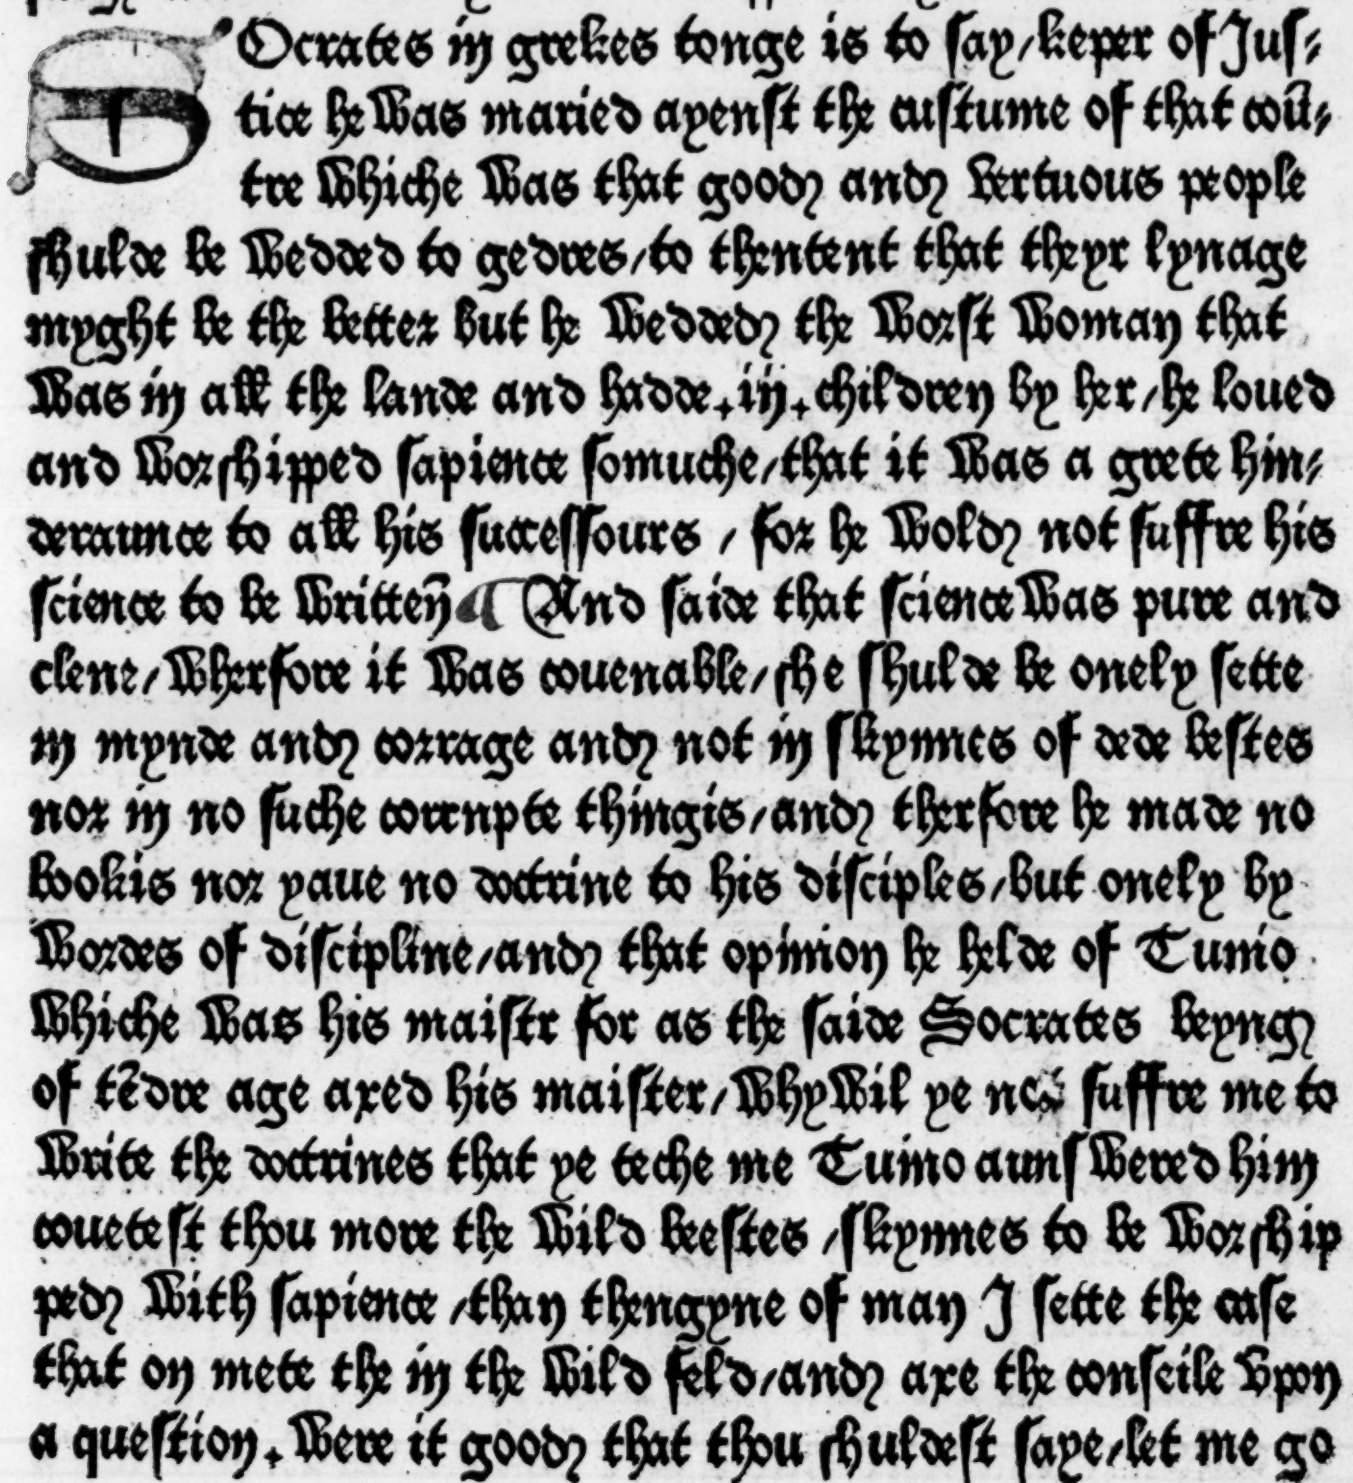 SOcrates in grekes tonge is to say/keper of Jus⸗
tice he was maried ayenst the custume of that coū⸗
tre whiche was that good and vertuous people
shulde be wedded to gedres/to thentent that theyr lynage
myght be the better but he wedded the worst woman that
was in all the lande and hadde.iij.children by her/he loued
and worshipped sapience somuche/that it was a grete hin⸗
deraunce to all his successours / for he wold not suffre his
science to be writteñ ¶ And saide that science was pure and
clene/wherfore it was couenable/she shulde be onely sette
in mynde and corrage and not in skynnes of dede bestes
nor in no suche corrnpte thingis/and therfore he made no
bookis nor yaue no doctrine to his disciples/but onely by
wordes of discipline/and that opinion he helde of Tunio
whiche was his maistr for as the saide Socrates beyng
of tēdre age axed his maister/why wil ye not suffre me to
write the doctrines that ye teche me Tuino aunswered him
couetest thou more the wild beestes /skynnes to be worship
ped with sapience /than thengyne of man J sette the case
that on mete the in the wild feld/and axe the conseile vpon
a question. were it good that thou shuldest saye/let me go